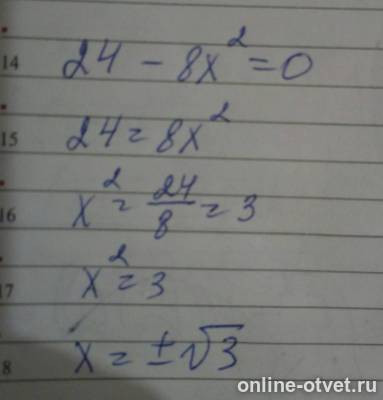 14 24 - 8x² = 0
15 24 = 8x²
16 x² = 24/8 = 3
17 x² = 3
8 x = ±√3
online-otvet.ru